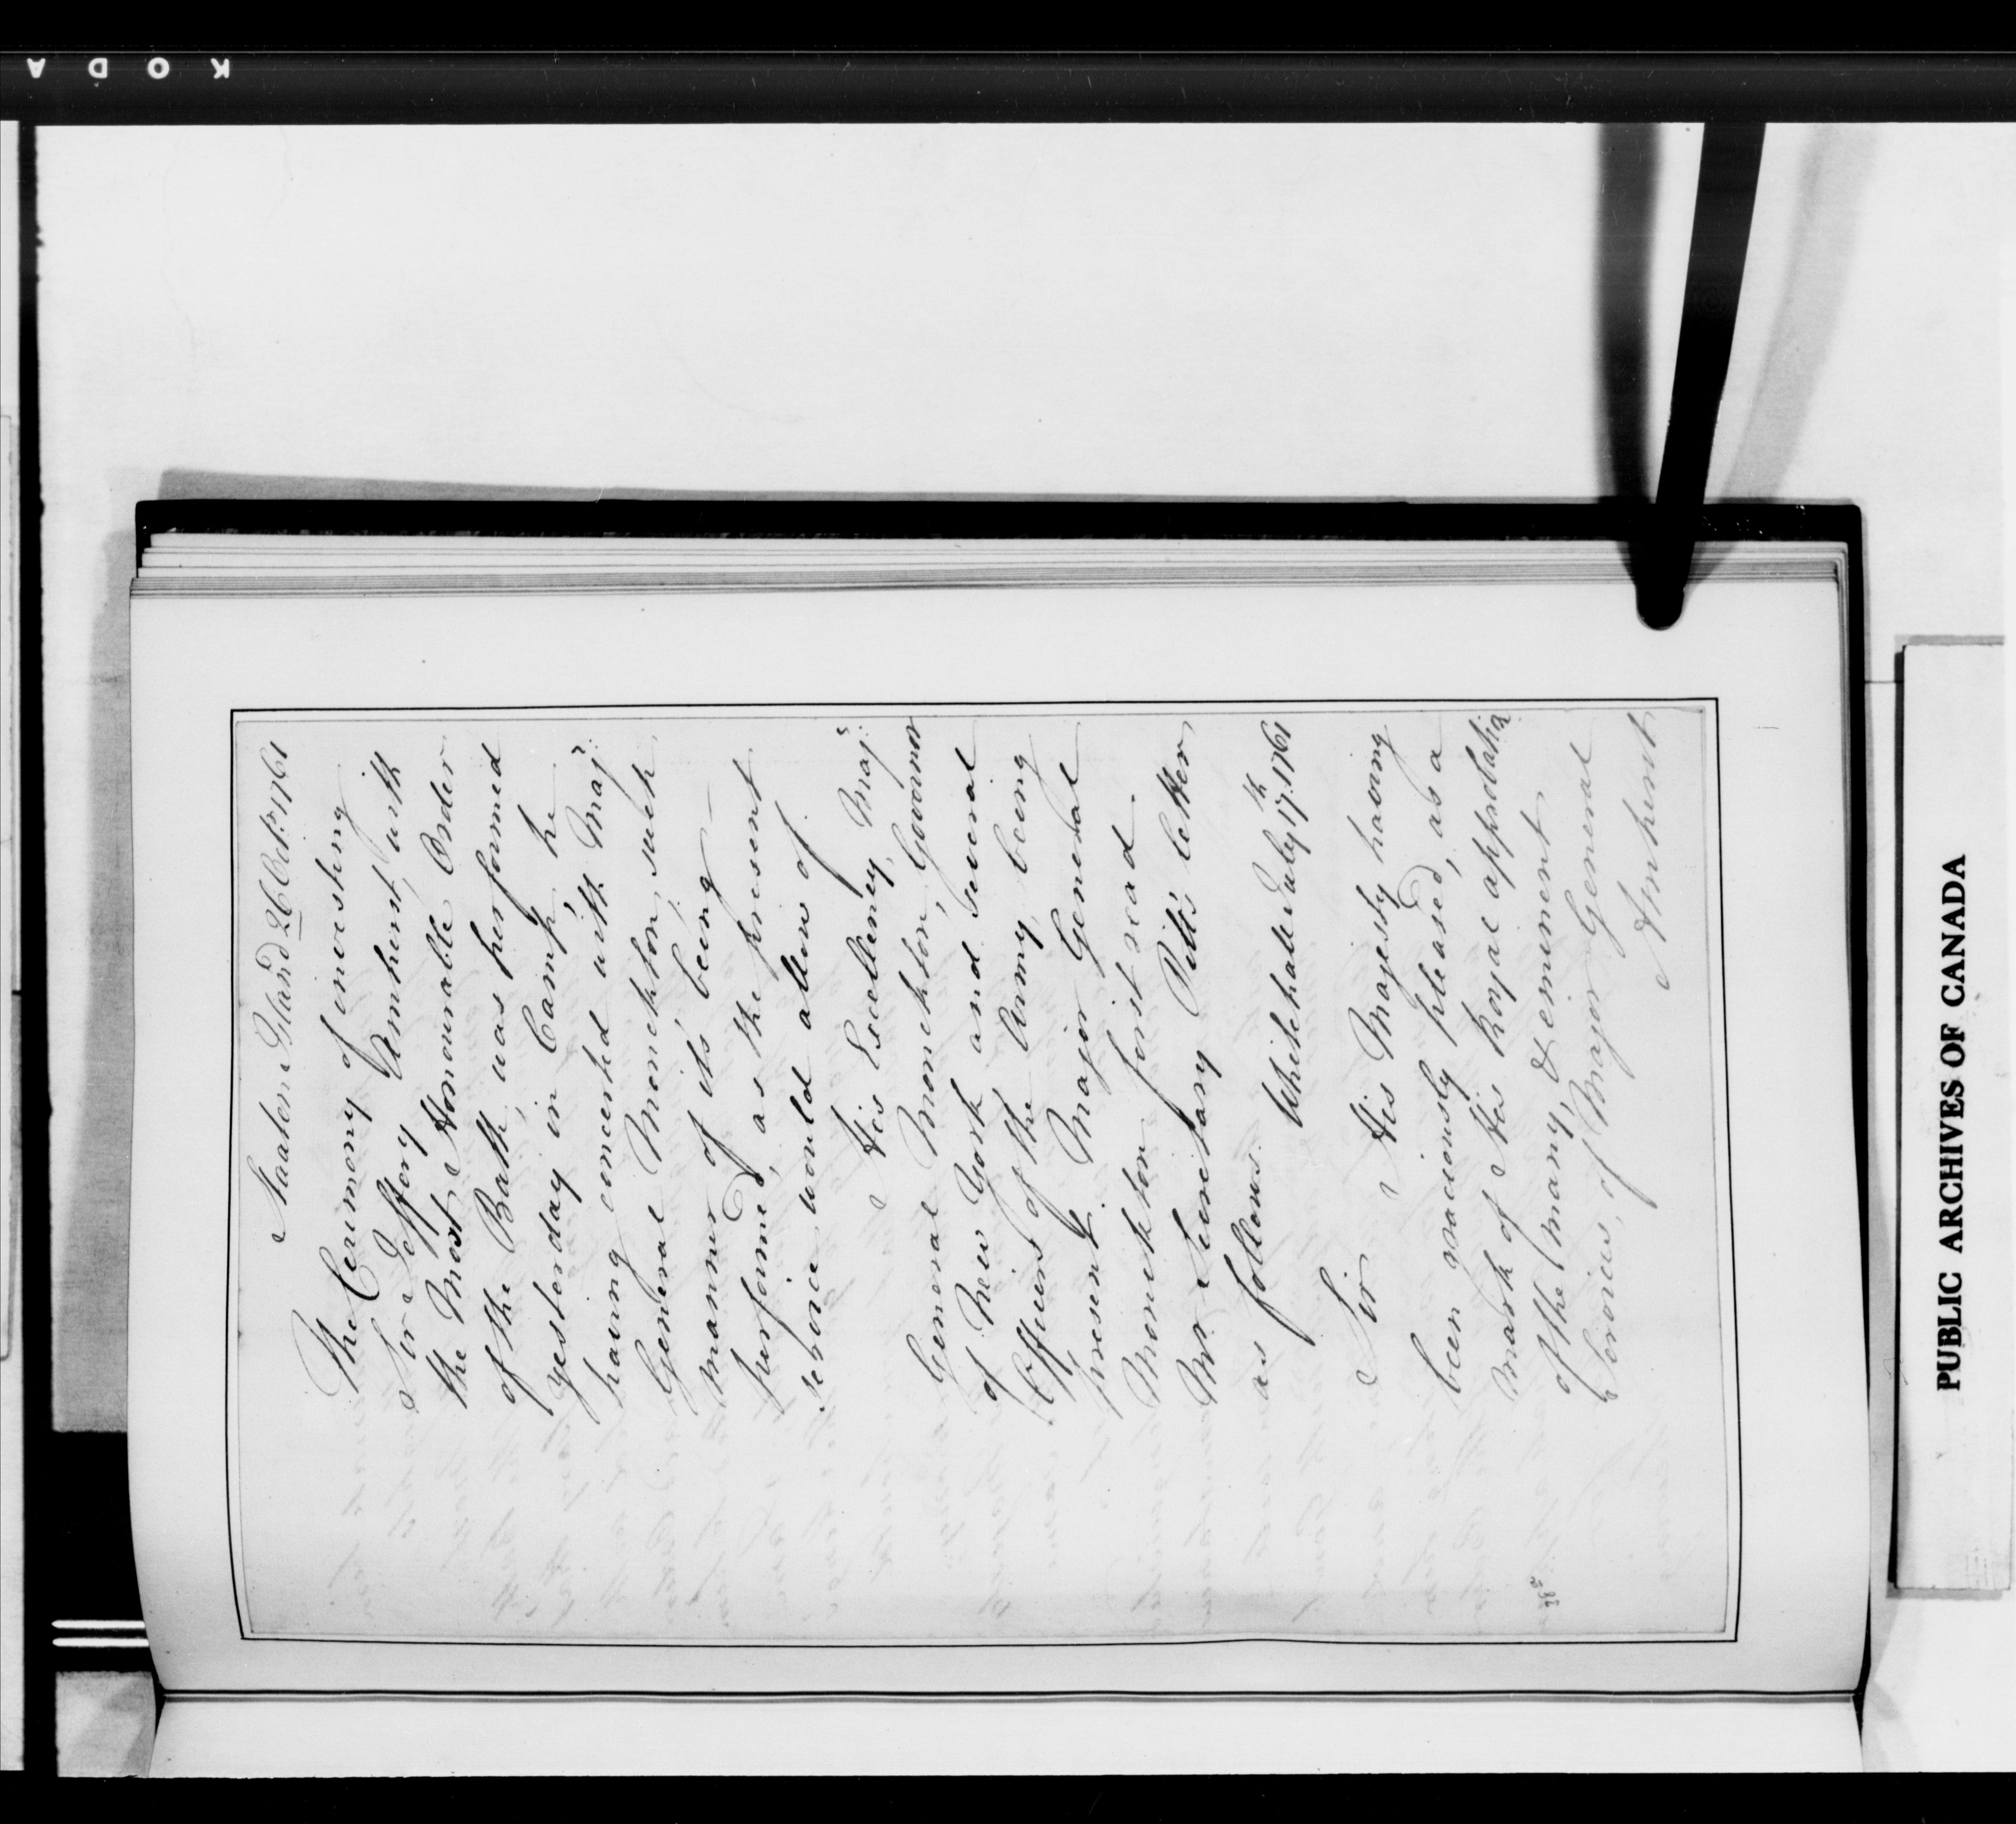 Staaten Island 26 Octr. 1761
The Ceremony of investing
Sir Jeffery Amherst, with
the Most Honourable Order
of the Bath, was performed
yesterday in Camp, he
having concerted with Majr.
General Monckton, such
manner of its being
performed, as the present
service would allow of.
His Excellency, Majr.
General Monckton, Governor
of New York, and several
Officers of the Army, being
present. Major General
Monckton first read
Mr. Secretary Pitt's letter
as follows.
Whitehall July 17th. 1761
Sir
His Majesty having
been graciously pleased, as a
mark of His Royal approbation
of the many, & eminent
Services, of Major General
Amherst
PUBLIC ARCHIVES OF CANADA
KODA